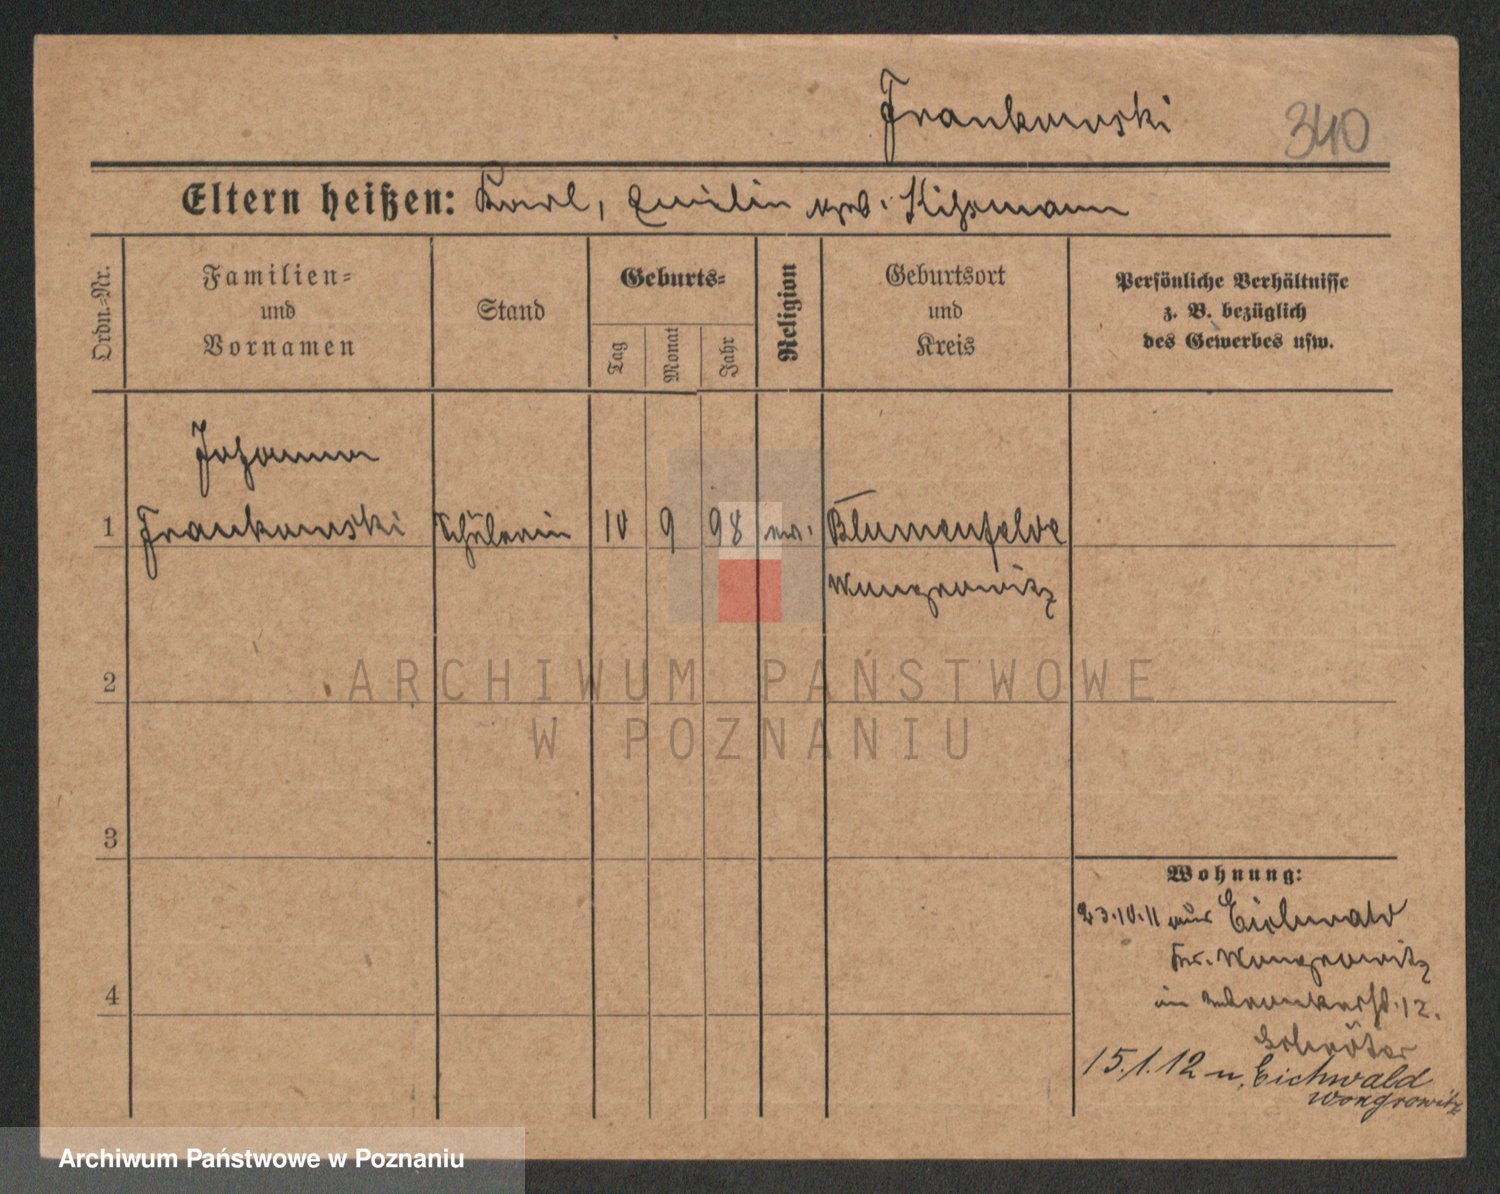 Frankowski
340
Eltern heißen: Karl, Emilie geb. Kihsmann
Ordn.-Nr.
Familien-
und
Vornamen
Stand
Geburts-
Tag
Monat
Jahr
Religion
Geburtsort
und
Kreis
Persönliche Verhältnisse
z. B. bezüglich
des Gewerbes usw.
Johanna
1 Frankowski Schülerin 10 9 98 ev. Blumenfelde
Wongrowitz
2
3
4
Wohnung:
23.10.11 aus Eichwald
Kr. Wongrowitz
in 12.
Schröter
15.1.12 n. Eichwald
Wongrowitz
ARCHIWUM PAŃSTWOWE
W POZNANIU
Archiwum Państwowe w Poznaniu